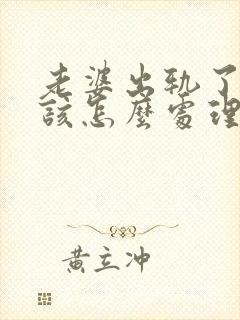 老婆出轨了
该怎麽處理
黄立冲